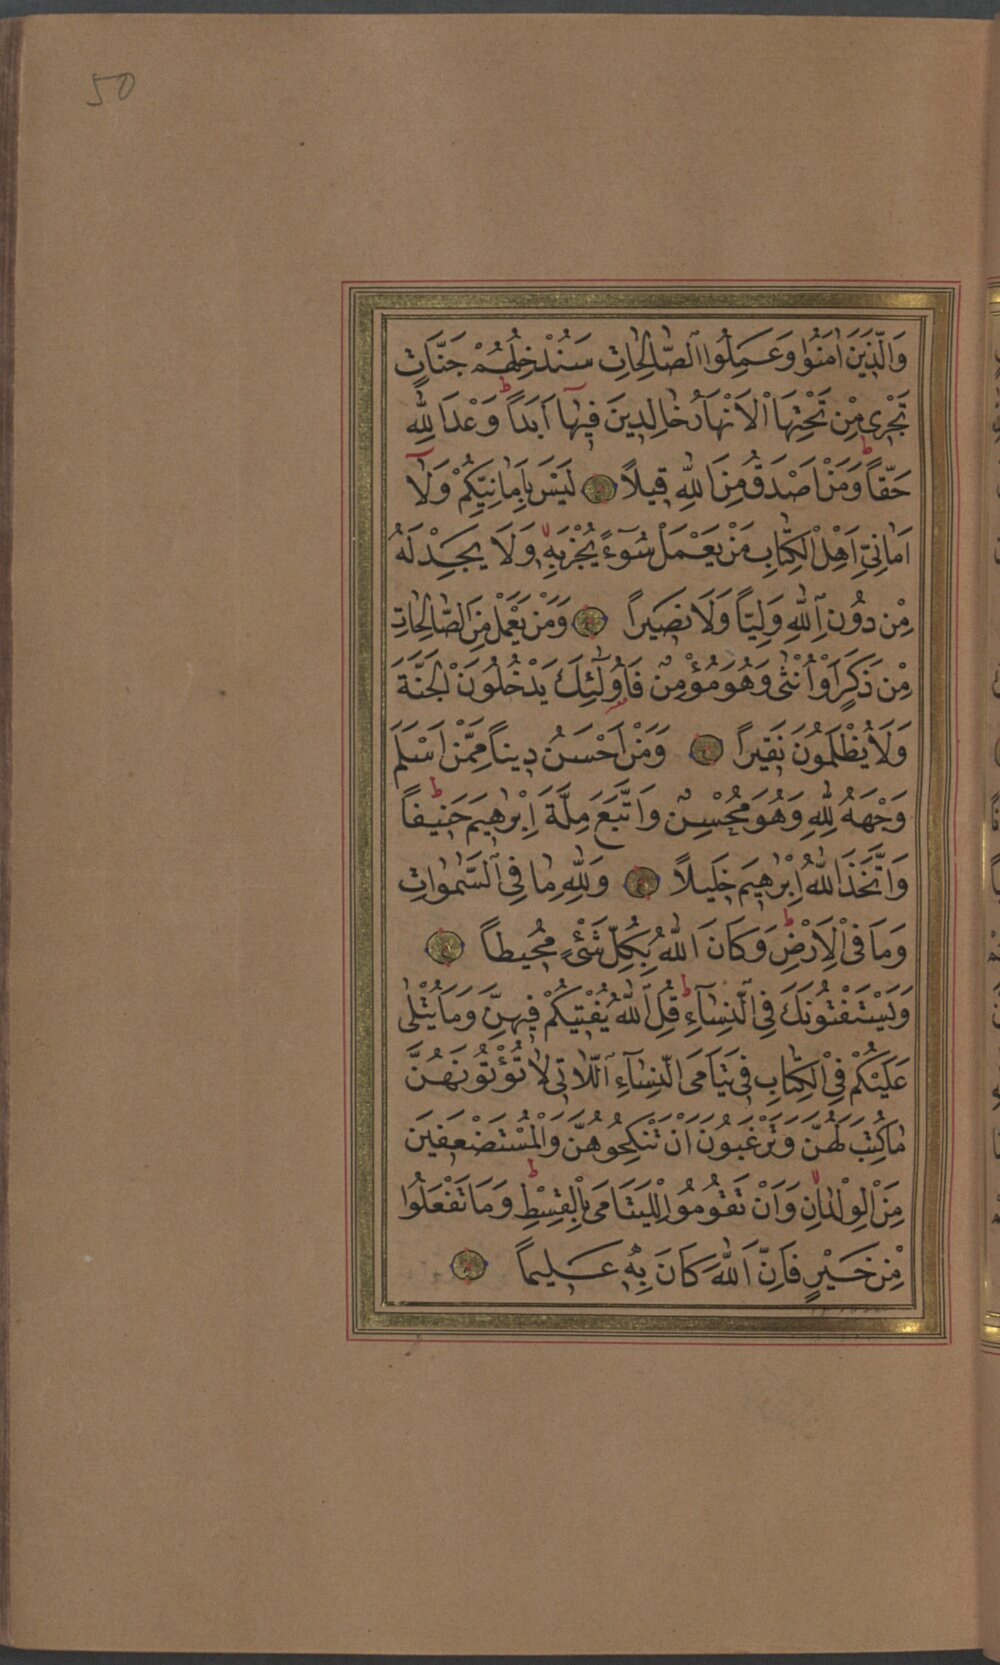 50
وَالَّذِينَ اٰمَنُوا وَعَمِلُوا الصَّالِحَاتِ سَنُدْخِلُهُمْ جَنَّاتٍ
تَجْرِى مِنْ تَحْتِهَا الْاَنْهَارُ خَالِدِينَ فِيهَٓا اَبَدًا ط وَعْدَ اللّٰهِ
حَقًّا ط وَمَنْ اَصْدَقُ مِنَ اللّٰهِ قِيلًا لَيْسَ بِاَمَانِيِّكُمْ وَلَٓا
اَمَانِىِّ اَهْلِ الْكِتَابِ مَنْ يَعْمَلْ سُٓوءًا يُجْزَ بِهِ وَلَا يَجِدْ لَهُ
مِنْ دُونِ اللّٰهِ وَلِيًّا وَلَا نَصِيرًا وَمَنْ يَعْمَلْ مِنَ الصَّالِحَاتِ
مِنْ ذَكَرٍ اَوْ اُنْثٰى وَهُوَ مُؤْمِنٌ فَاُولٰٓئِكَ يَدْخُلُونَ الْجَنَّةَ
وَلَا يُظْلَمُونَ نَقِيرًا وَمَنْ اَحْسَنُ دِينًا مِمَّنْ اَسْلَمَ
وَجْهَهُ لِلّٰهِ وَهُوَ مُحْسِنٌ وَاتَّبَعَ مِلَّةَ اِبْرٰهِيمَ حَنِيفًا ط
وَاتَّخَذَ اللّٰهُ اِبْرٰهِيمَ خَلِيلًا وَلِلّٰهِ مَا فِى السَّمٰوَاتِ
وَمَا فِى الْاَرْضِ ط وَكَانَ اللّٰهُ بِكُلِّ شَىْءٍ مُحِيطًا
وَيَسْتَفْتُونَكَ فِى النِّسَٓاءِ ط قُلِ اللّٰهُ يُفْتِيكُمْ فِيهِنَّ وَمَا يُتْلٰى
عَلَيْكُمْ فِى الْكِتَابِ فِى يَتَامَى النِّسَٓاءِ اللَّاتِى لَا تُؤْتُونَهُنَّ
مَا كُتِبَ لَهُنَّ وَتَرْغَبُونَ اَنْ تَنْكِحُوهُنَّ وَالْمُسْتَضْعَفِينَ
مِنَ الْوِلْدَانِ وَاَنْ تَقُومُوا لِلْيَتَامَى بِالْقِسْطِ ط وَمَا تَفْعَلُوا
مِنْ خَيْرٍ فَاِنَّ اللّٰهَ كَانَ بِهِ عَلِيمًا